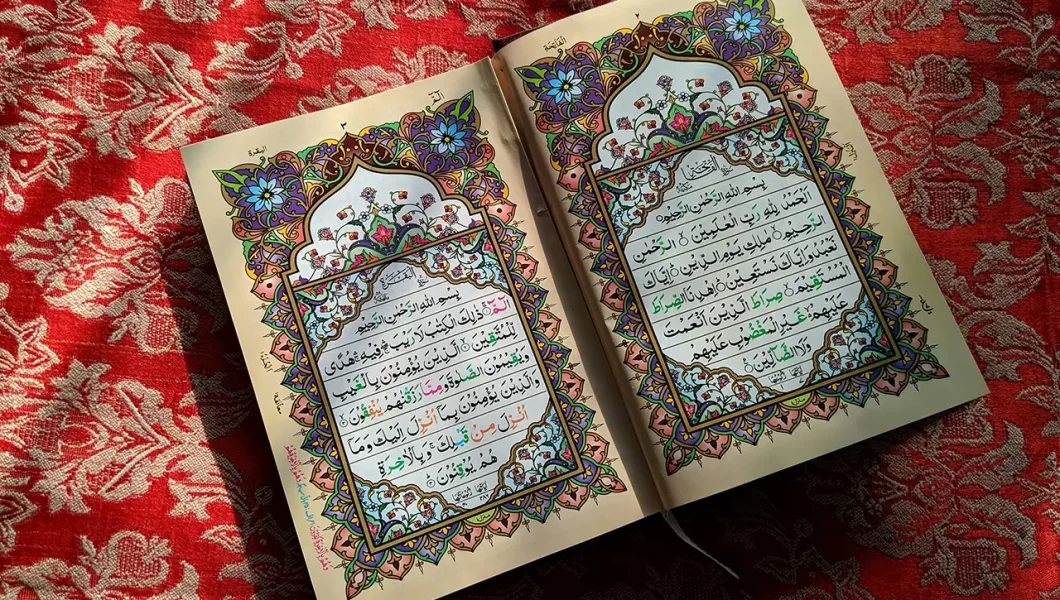 ٢
الفاتحة
بِسْمِ اللهِ الرَّحْمٰنِ الرَّحِيْمِ
اَلْحَمْدُ لِلّٰهِ رَبِّ الْعٰلَمِيْنَ ۙ الرَّحْمٰنِ
الرَّحِيْمِ ۙ مٰلِكِ يَوْمِ الدِّيْنِ ؕ اِيَّاكَ
نَعْبُدُ وَاِيَّاكَ نَسْتَعِيْنُ ؕ اِهْدِنَا الصِّرَاطَ
الْمُسْتَقِيْمَ ۙ صِرَاطَ الَّذِيْنَ اَنْعَمْتَ
عَلَيْهِمْ ۙ غَيْرِ الْمَغْضُوْبِ عَلَيْهِمْ
وَلَا الضَّآلِّيْنَ
٣
البقرة
بِسْمِ اللهِ الرَّحْمٰنِ الرَّحِيْمِ
الٓمّٓ ۚ ذٰلِكَ الْكِتٰبُ لَا رَيْبَ ۛ فِيْهِ ۛ هُدًى
لِّلْمُتَّقِيْنَ ۙ الَّذِيْنَ يُؤْمِنُوْنَ بِالْغَيْبِ
وَيُقِيْمُوْنَ الصَّلٰوةَ وَمِمَّا رَزَقْنٰهُمْ يُنْفِقُوْنَ ۙ
وَالَّذِيْنَ يُؤْمِنُوْنَ بِمَآ اُنْزِلَ اِلَيْكَ وَمَآ
اُنْزِلَ مِنْ قَبْلِكَ ۚ وَبِالْاٰخِرَةِ
هُمْ يُوْقِنُوْنَ
٢٨٦